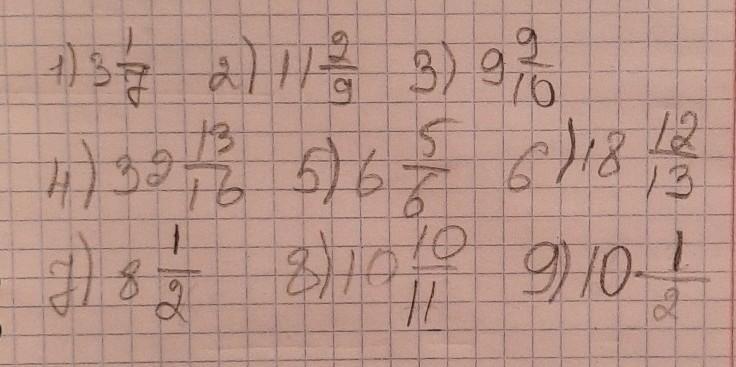 1) 3 1/7 2) 11 2/9 3) 9 9/10
4) 32 13/16 5) 6 5/6 6) 18 12/13
7) 8 1/2 8) 10 10/11 9) 10 1/2